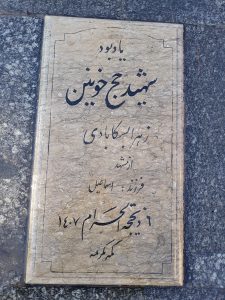 یادبود
شهید حج خونین
زهرا ابکابادی
از مشهد
فرزند: اسماعیل
۶ ذیحجه الحرام ۱۴۰۷
مکه مکرمه